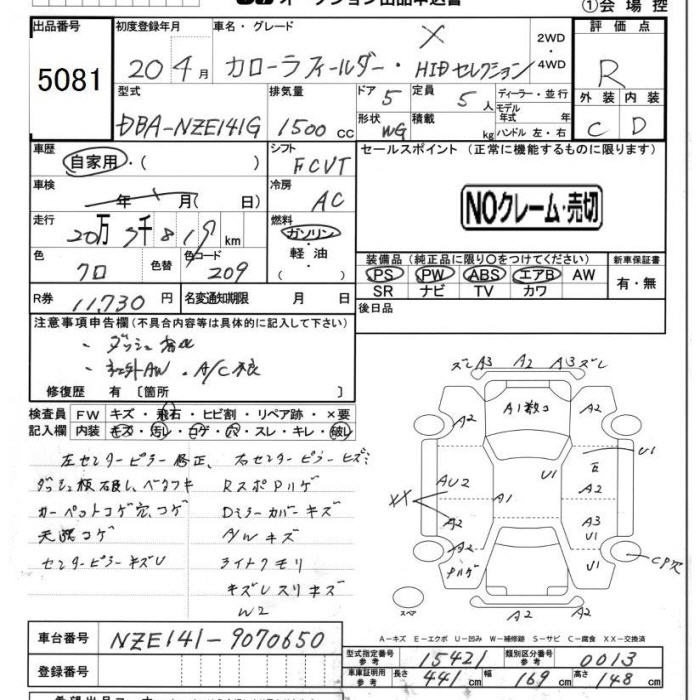 オークション出品申込書
①会場控
出品番号 初度登録年月 車名・グレード 評価点
5081 20年4月 カローラフィールダー・X HIDセレクション 2WD・4WD R
型式 排気量 ドア 5 定員 5人 ディーラー・並行 外装 内装
DBA-NZE141G 1500cc 形状 WG 積載 kg モデル年式 年 ハンドル 左・右 C D
車歴 自家用・( ) シフト FCVT セールスポイント (正常に機能するものに限ります)
車検 年 月( 日) 冷房 AC
NOクレーム・売切
走行 20万 千 8 1 km 燃料 ガソリン・軽油・( )
色 クロ 色替 色コード 209
装備品(純正品に限り○をつけてください) 新車保証書
PS PW ABS エアB AW 有・無
SR ナビ TV カワ
R券 11,730円 名変通知期限 月 日
後日品
注意事項申告欄(不具合内容等は具体的に記入して下さい)
・ダッシュ
・社外AW ・A/C
修復歴 有〔箇所 〕
検査員記入欄 FW キズ・飛石・ヒビ割・リペア跡・×要
内装 キズ・汚レ・コゲ・穴・スレ・キレ・破レ
左センターピラー修正、右センターピラーヒズミ
ダッシュ板破レ、ベタツキ RスポPハゲ
カーペットコゲ穴、コゲ Dミラーカバーキズ
天張コゲ A/Wキズ
センターピラーキズU ライトクモリ
キズUスリキズ
W2
ズレ A3 A2 A3 ズレ
A2 A1数コ A2
U1
XX AU2 A1 U1 E A2
A2 A3
A2 U1
Pハゲ CP穴
スペア A2 A2
A-キズ E-エクボ U-凹み W-補修跡 S-サビ C-腐食 XX-交換済
車台番号 NZE141-9070650
登録番号
型式指定番号 参考 15421 類別区分番号 参考 0013
車庫証明用 参考 長さ 441cm 幅 169cm 高さ 148cm